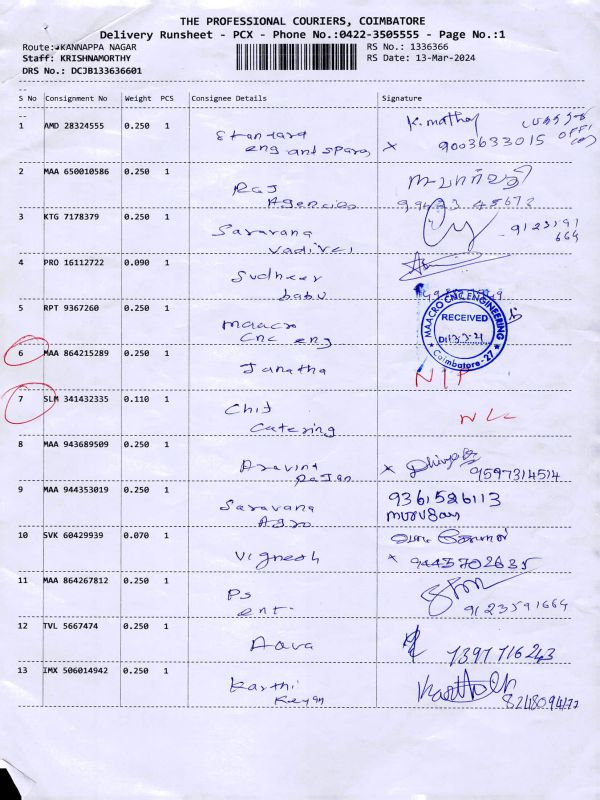 THE PROFESSIONAL COURIERS, COIMBATORE
Delivery Runsheet - PCX - Phone No.:0422-3505555 - Page No.:1
Route: KANNAPPA NAGAR RS No.: 1336366
Staff: KRISHNAMORTHY RS Date: 13-Mar-2024
DRS No.: DCJB133636601
S No Consignment No Weight PCS Consignee Details Signature
1 AMD 28324555 0.250 1 K.mathy
Standard
eng and spares x 9003633015
2 MAA 650010586 0.250 1
Raj
Agencies
3 KTG 7178379 0.250 1
Saravana 9123591
Vadivel 664
4 PRO 16112722 0.090 1
Sudheer
babu
5 RPT 9367260 0.250 1
Maacro
Cnc eng
MAACRO CNC ENGINEERING
RECEIVED
Coimbatore-27
6 MAA 864215289 0.250 1
Janatha
7 SLM 341432335 0.110 1
Chif
Catering
8 MAA 943689509 0.250 1
Aravint x Dhivya
Rajan 9597314514
9 MAA 944353019 0.250 1
Saravana 9361526113
Agro
10 SVK 60429939 0.070 1
Vignesh x 9445702635
11 MAA 864267812 0.250 1
Ps
ent. 9123591664
12 TVL 5667474 0.250 1
Aava 7397716243
13 IMX 506014942 0.250 1
Karthi
Keyan